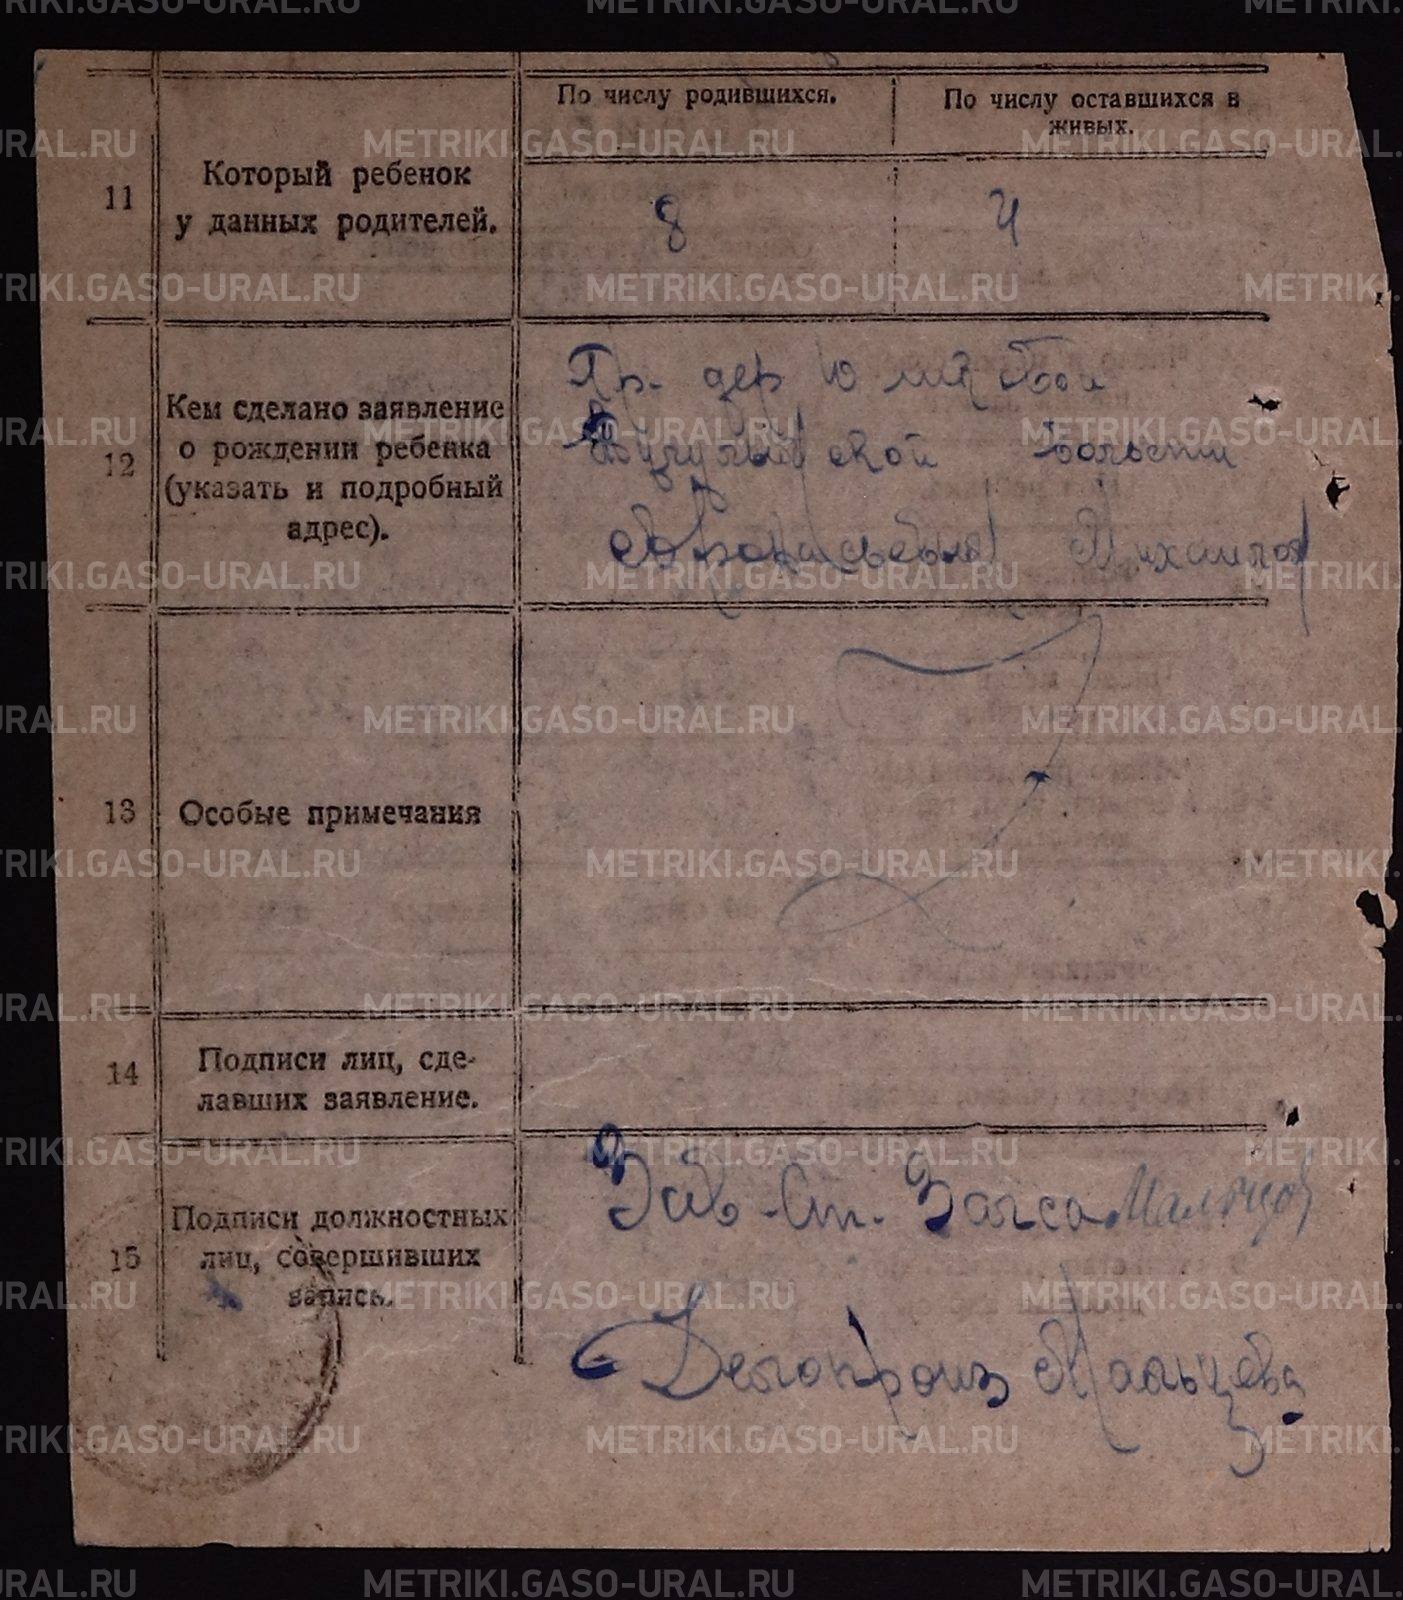 По числу родившихся.
По числу оставшихся в
живых.
11
Который ребенок
у данных родителей.
8
4
12
Кем сделано заявление
о рождении ребенка
(указать и подробный
адрес).
Гр. дер
волости
Михаилов
13
Особые примечания
14
Подписи лиц, сде-
лавших заявление.
15
Подписи должностных
лиц, совершивших
запись.
Зав. Загса Мальцов
Делопроиз Мальцева
METRIKI.GASO-URAL.RU